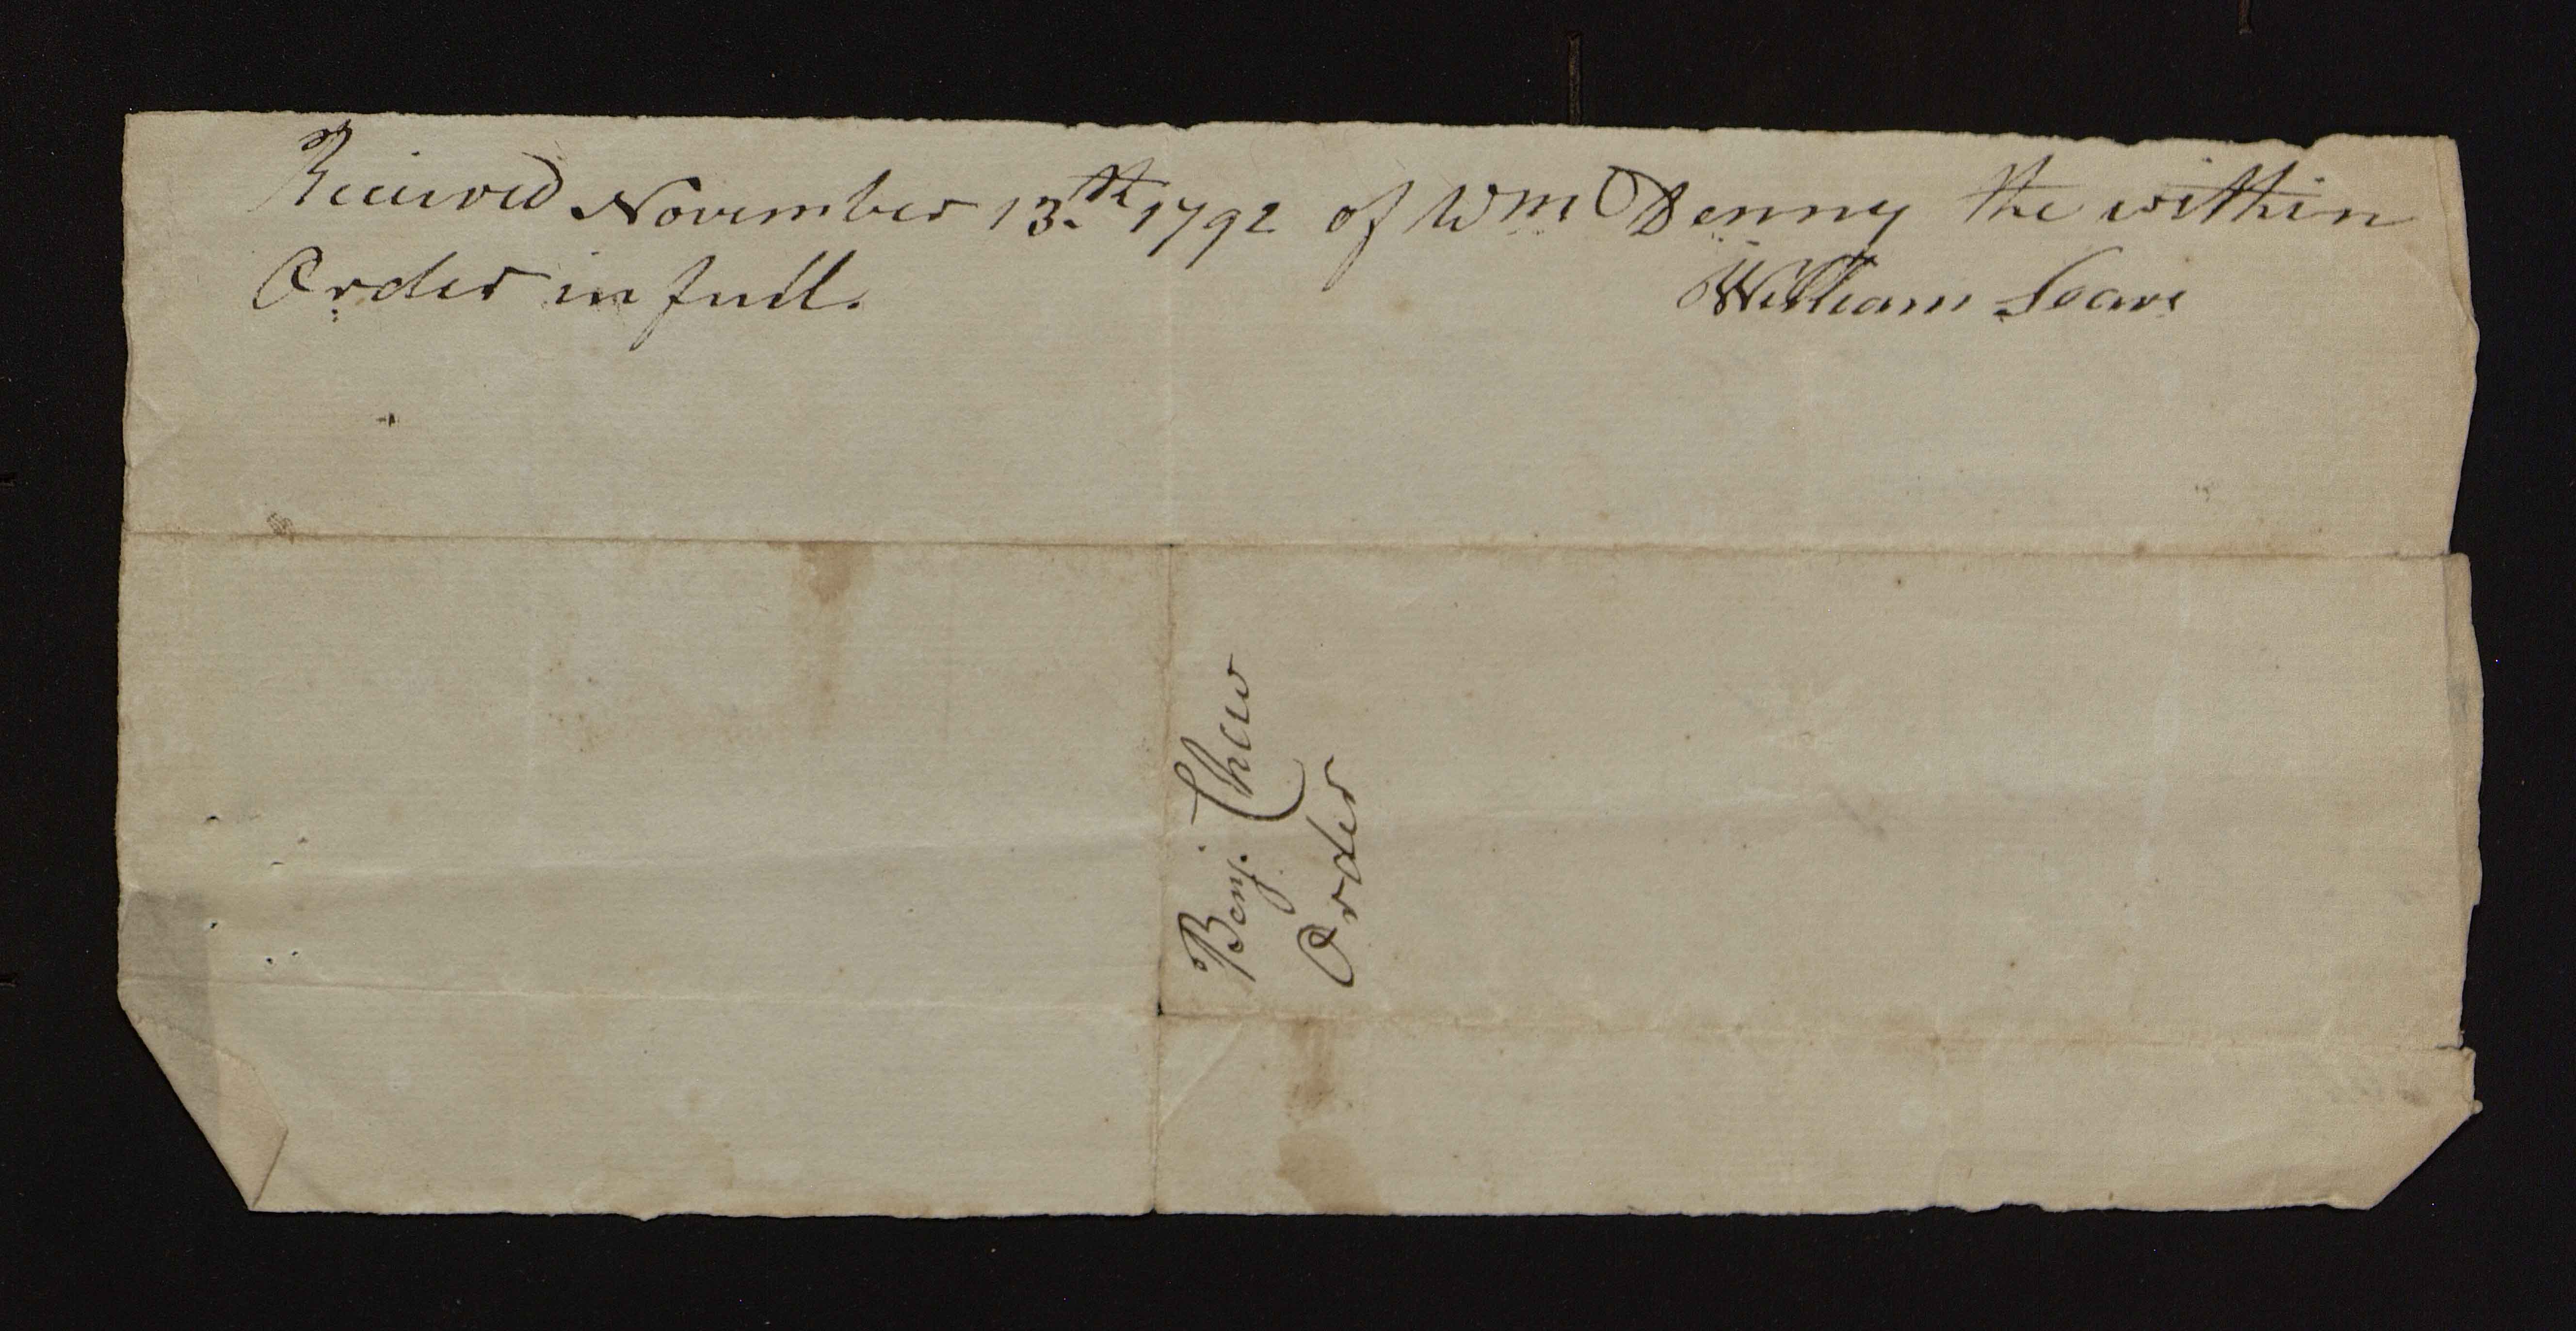 Received November 13.th 1792 of Wm Denny the within
Order in full.
William Sears
Benj. Chew
Order